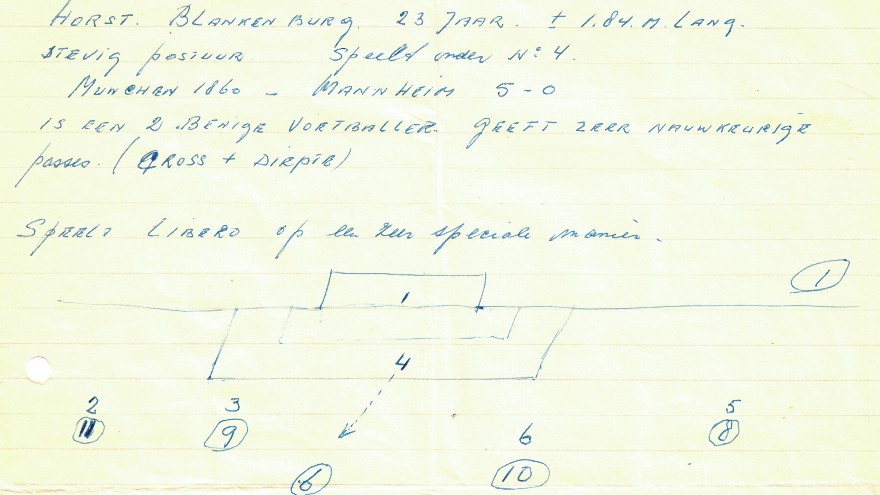 HORST. BLANKENBURG. 23 JAAR. ± 1.84. M. LANG.
STEVIG POSTUUR Speeld onder No 4.
MUNCHEN 1860 - MANNHEIM 5-0
IS EEN 2 BENIGE VOETBALLER. GEEFT ZEER NAUWKEURIGE
passes. (CROSS + DIEPTE)
SPEELT LIBERO op een zeer speciale manier.
1
1
4
2 3 5
11 9 6 8
6 10